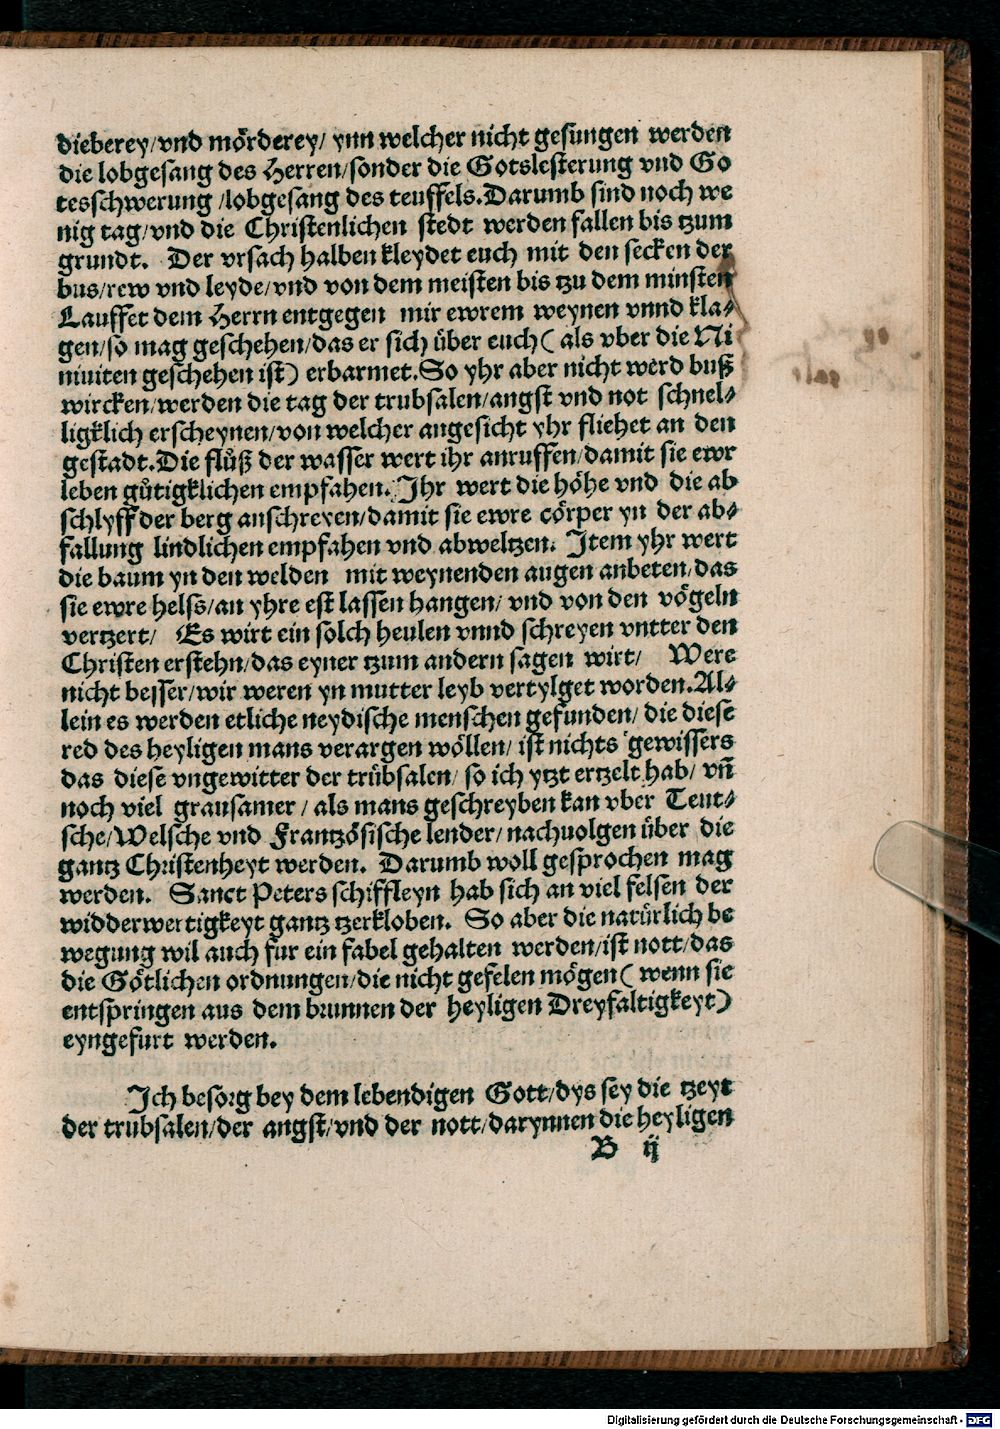 dieberey/vnd mörderey/ ynn welcher nicht gesungen werden
die lobgesang des Herren/sonder die Gotslesterung vnd Go
tesschwerung /lobgesang des teuffels.Darumb sind noch we
nig tag/vnd die Christenlichen stedt werden fallen bis tzum
grundt. Der vrsach halben kleydet euch mit den secken der
bus/rew vnd leyde/vnd von dem meisten bis tzu dem minsten
Lauffet dem Herrn entgegen mir ewrem weynen vnnd kla⸗
gen/so mag geschehen/das er sich über euch( als vber die Ni
niuiten geschehen ist) erbarmet.So yhr aber nicht werd buß
wircken/werden die tag der trubsalen/angst vnd not schnel⸗
ligklich erscheynen/von welcher angesicht yhr fliehet an den
gestadt.Die flůß der wasser wert ihr anruffen/damit sie ewr
leben gůtigklichen empfahen. Ihr wert die höhe vnd die ab
schlyff der berg anschreyen/damit sie ewre cörper yn der ab⸗
fallung lindlichen empfahen vnd abweltzen. Item yhr wert
die baum yn den welden mit weynenden augen anbeten/das
sie ewre helss/an yhre est lassen hangen/ vnd von den vögeln
vertzert/ Es wirt ein solch heulen vnnd schreyen vntter den
Christen erstehn/das eyner tzum andern sagen wirt/ Were
nicht besser/wir weren yn mutter leyb vertylget worden.Al⸗
lein es werden etliche neydische menschen gefunden/ die diese
red des heyligen mans verargen wöllen/ ist nichts gewissers
das diese vngewitter der trübsalen/ so ich ytzt ertzelt hab/ vn̄
noch viel grausamer / als mans geschreyben kan vber Teut⸗
sche/Welsche vnd Frantzösische lender/ nachuolgen über die
gantz Christenheyt werden. Darumb woll gesprochen mag
werden. Sanct Peters schiffleyn hab sich an viel felsen der
widderwertigkeyt gantz tzerkloben. So aber die natürlich be
wegung wil auch fur ein fabel gehalten werden/ist nott/das
die Götlichen ordnungen/die nicht gefelen mögen( wenn sie
entspringen aus dem brunnen der heyligen Dreyfaltigkeyt)
eyngefurt werden.
Ich besorg bey dem lebendigen Gott/dys sey die tzeyt
der trübsalen/der angst/vnd der nott/darynnen die heyligen
B ij
Digitalisierung gefördert durch die Deutsche Forschungsgemeinschaft - DFG